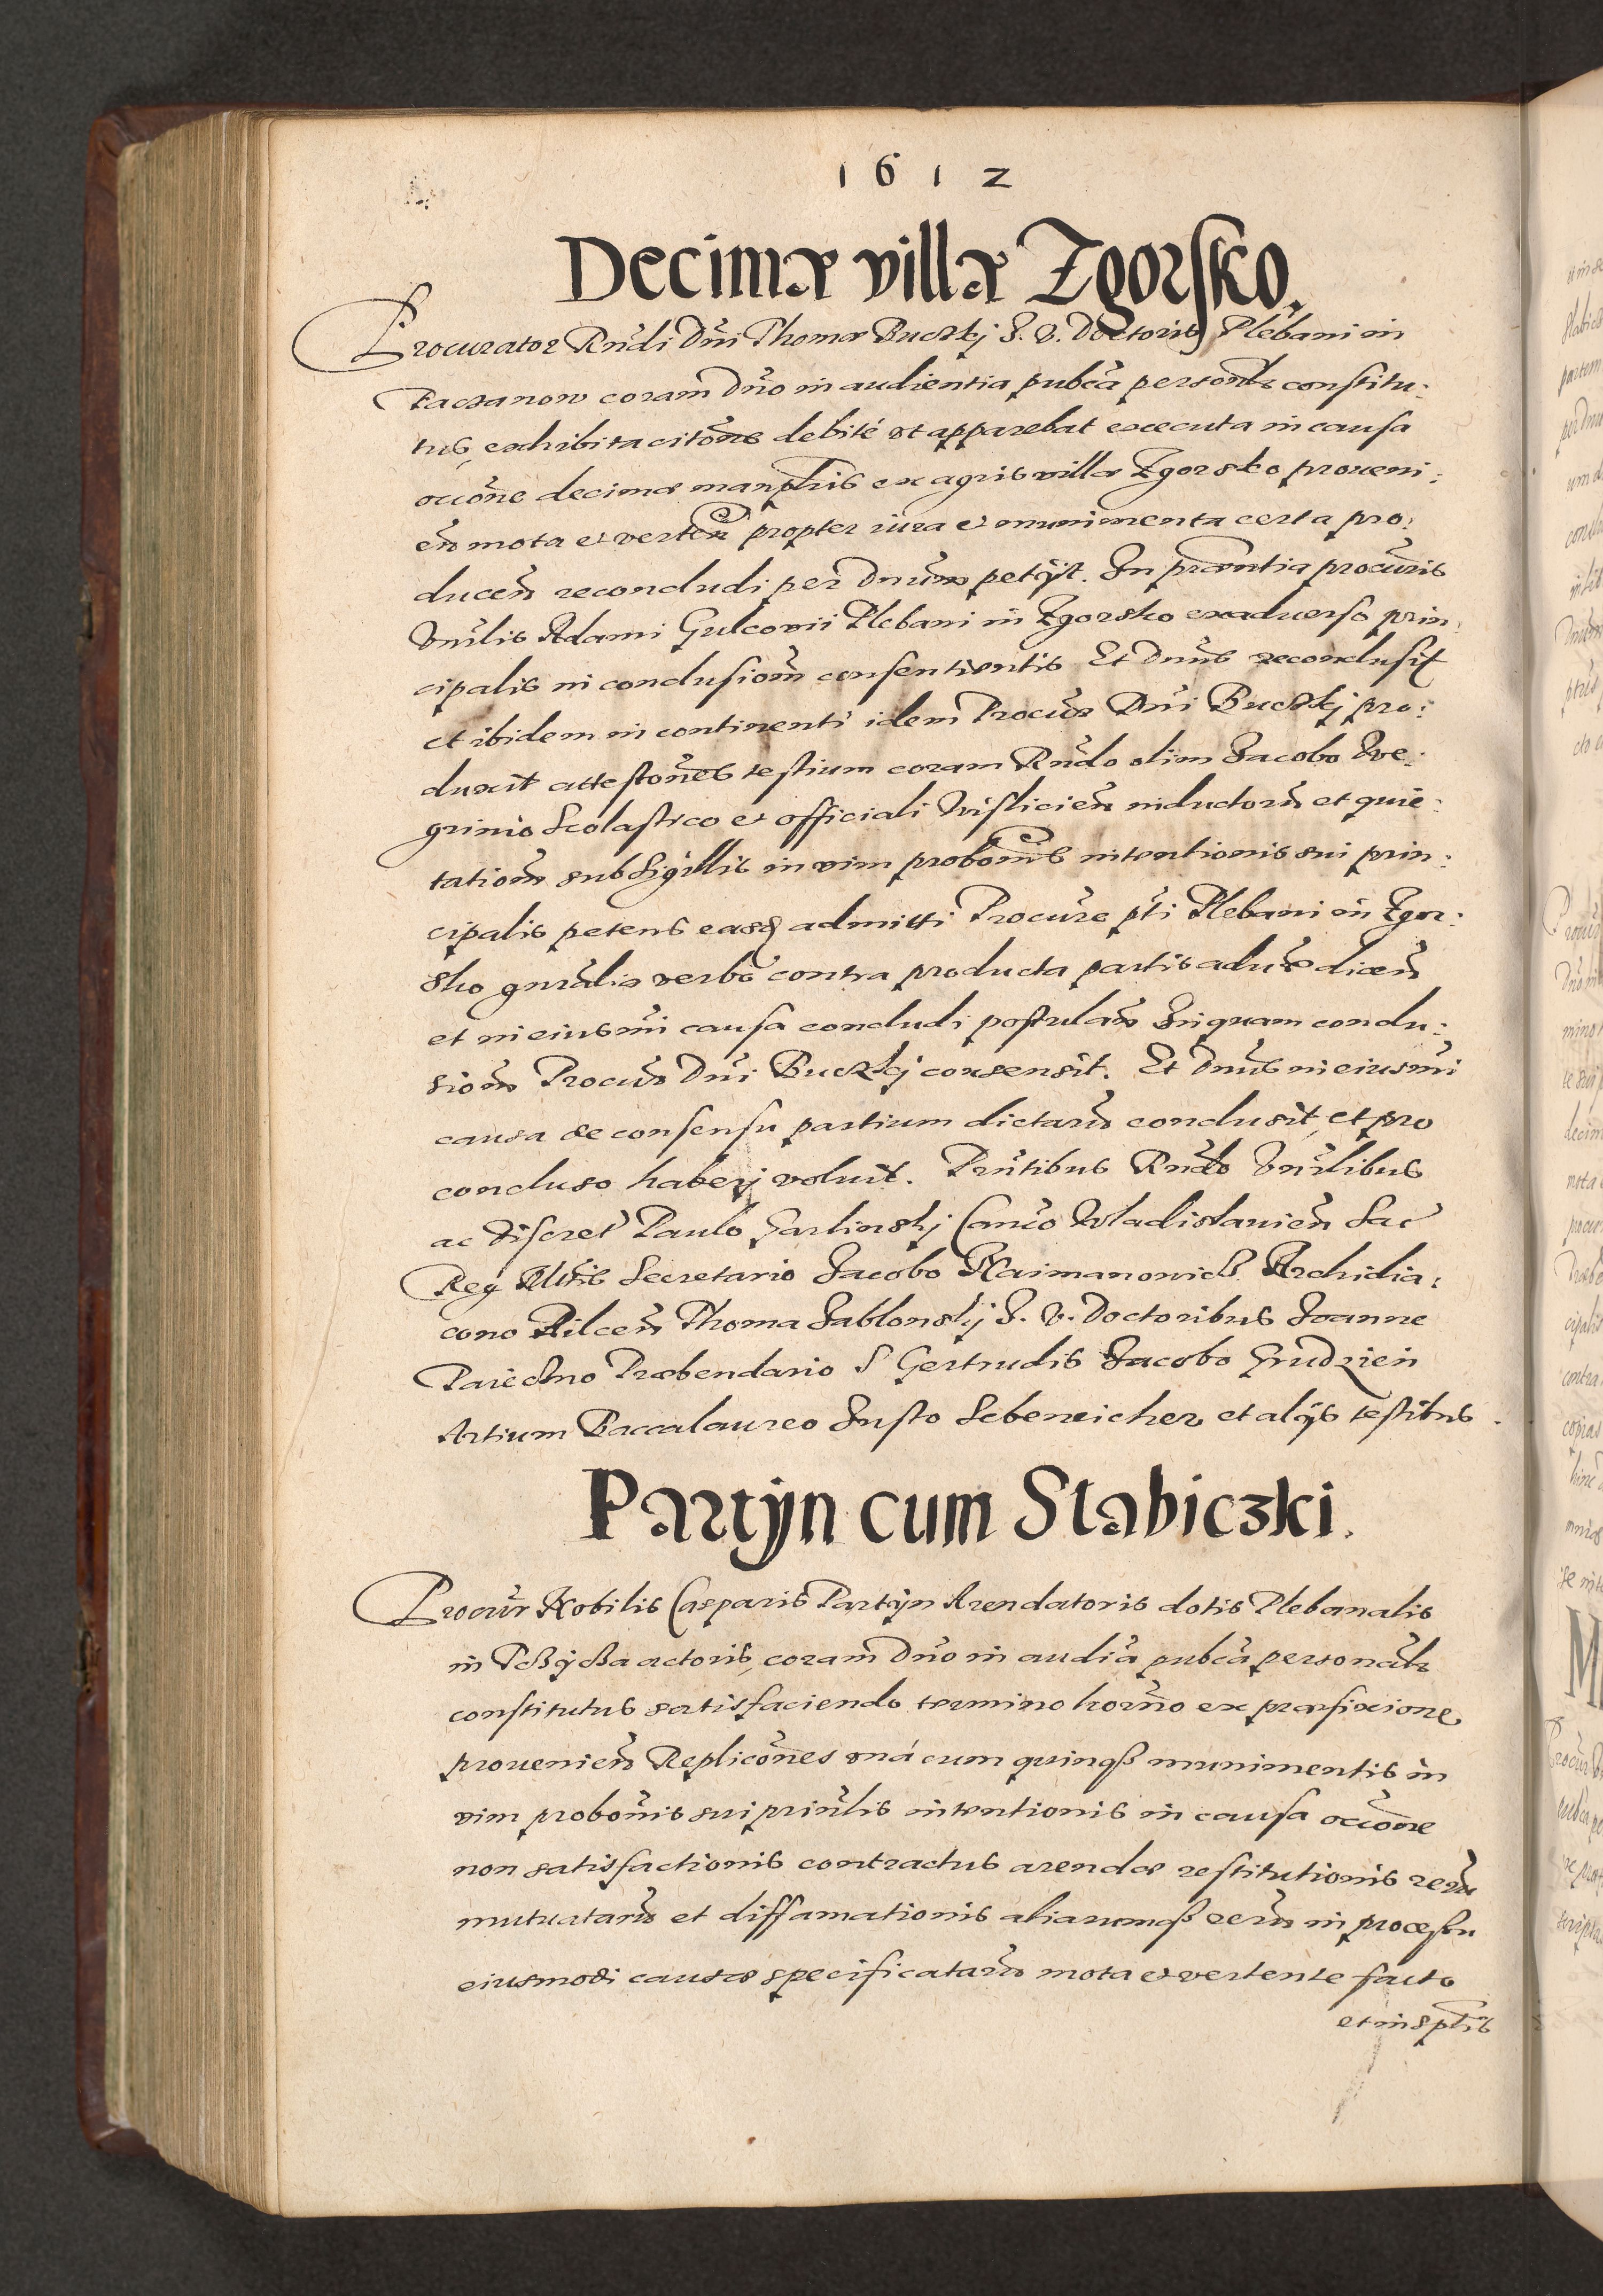 1612
Decimæ villæ Zgorsko.
Procurator Rndi Dni Thomæ Buczkj J. V. Doctoris Plebani in
Paczanow coram Dno in audientia pubca personlr constitu:
tus, exhibita citõne debité vt apparebat executa in causa
occõne decimæ manplris ex agris villæ Zgorsko proueni:
eñ mota et verteñ propter iura et munimenta certa pro:
duceñ reconcludi per Dnum petijt. In præsentia procuris
Vnrlis Adami Gulconii Plebani in Zgorsko exaduerso prin:
cipalis in conclusionem consentientis Et Dnus reconclusit
et ibidem in continenti idem Procur Dni Buczkj pro:
duxit attestõnes testium coram Rndo olim Jacobo
grinio Scolastico et officiali Wislicieñ inductorũ et quie:
tationem sub Sigillis in vim probõnis intentionis sui prin:
cipalis petens easq admitti Procure pti Plebani in Zgor:
sko gnralia verbo contra producta partis aduræ diceñ
et in eiusmi causa concludi postulañ In quam conclu:
sionem Procur Dni Buczkj consensit. Et Dnus in eiusmi
causa de consensu partium dictarũ conclusit, et pro
concluso haberj voluit. Prñtibus Rndo Vnrlibus
ac discret Paulo Garlinskj Canco Wladislauieñ Sac
Reg Mtis Secretario Jacobo Naimanowicz Archidia:
cono Pilceñ Thoma Jablonskj J. V. Doctoribus Joanne
Præbendario S Gertrudis Jacobo Grudzień
Artium Baccalaureo Justo Lebeneicher et alijs testibus.
Partÿn cum Stabiczki.
Procur Nobilis Casparis Partÿn Arendatoris dotis Plebanalis
in actoris, coram Dno in audia pubca personalr
constitutus satisfaciendo termino horno ex præfixione
prouenieñ Replicõnes vná cum quinqß munimentis in
vim probõnis sui prinlis intentionis in causa occõne
non satisfactionis contractus arendæ restitutionis rerũ
mutuatarũ et diffamationis aliarumqß rerũ in processu
eiusmodi causæ specificatarũ mota et vertente facto
et in sptis